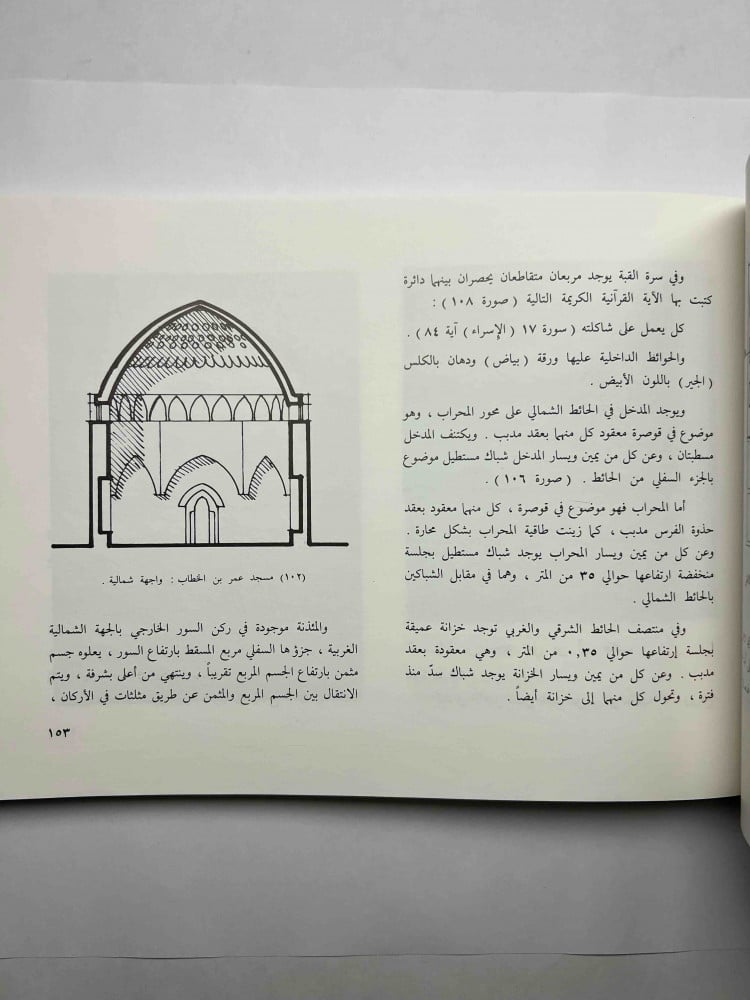 وفي سرة القبة يوجد مربعان متقاطعان يحصران بينهما دائرة
كتبت بها الآية القرآنية الكريمة التالية ( صورة ١٠٨ ) :
كل يعمل على شاكلته ( سورة ١٧ ( الإسراء ) آية ٨٤ ) .
والحوائط الداخلية عليها ورقة ( بياض ) ودهان بالكلس
( الجير ) باللون الأبيض .
ويوجد المدخل في الحائط الشمالي على محور المحراب ، وهو
موضوع في قوصرة معقود كل منهما بعقد مدبب . ويكتنف المدخل
مسطبتان ، وعن كل من يمين ويسار المدخل شباك مستطيل موضوع
بالجزء السفلي من الحائط . ( صورة ١٠٦ ) .
أما المحراب فهو موضوع في قوصرة ، كل منهما معقود بعقد
حذوة الفرس مدبب ، كما زينت طاقية المحراب بشكل محارة .
وعن كل من يمين ويسار المحراب يوجد شباك مستطيل بجلسة
منخفضة ارتفاعها حوالي ٣٥ من المتر ، وهما في مقابل الشباكين
بالحائط الشمالي .
وفي منتصف الحائط الشرقي والغربي توجد خزانة عميقة
بجلسة إرتفاعها حوالي ٠,٣٥ من المتر ، وهي معقودة بعقد
مدبب . وعن كل من يمين ويسار الخزانة يوجد شباك سدّ منذ
فترة ، وتحول كل منهما إلى خزانة أيضاً .
(١٠٢) مسجد عمر بن الخطاب : واجهة شمالية .
والمئذنة موجودة في ركن السور الخارجي بالجهة الشمالية
الغربية ، جزؤها السفلي مربع المسقط بارتفاع السور ، يعلوه جسم
مثمن بارتفاع الجسم المربع تقريباً ، وينتهي من أعلى بشرفة ، ويتم
الانتقال بين الجسم المربع والمثمن عن طريق مثلثات في الأركان ،
١٥٣